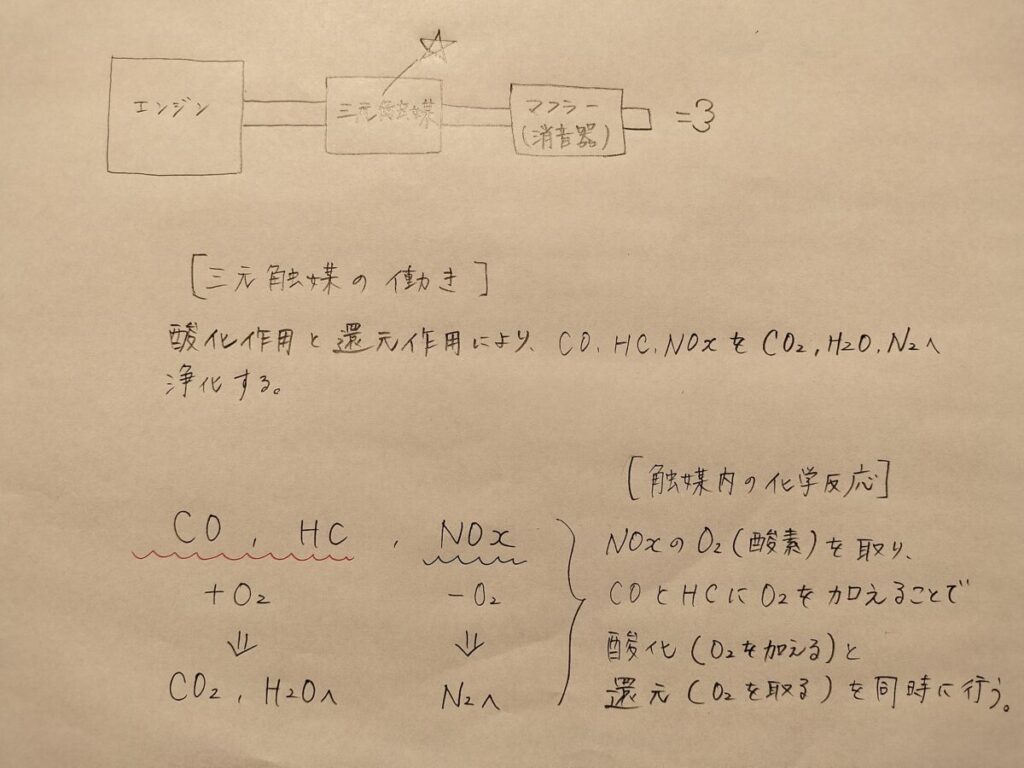 エンジン
三元触媒
マフラー
(消音器)
=3
[三元触媒の働き]
酸化作用と還元作用により、CO,HC,NOxをCO2,H2O,N2へ
浄化する。
CO, HC, NOx
+O2 -O2
⇓ ⇓
CO2, H2Oへ N2へ
[触媒内の化学反応]
NOxのO2(酸素)を取り、
COとHCにO2を加えることで
酸化(O2を加える)と
還元(O2を取る)を同時に行う。